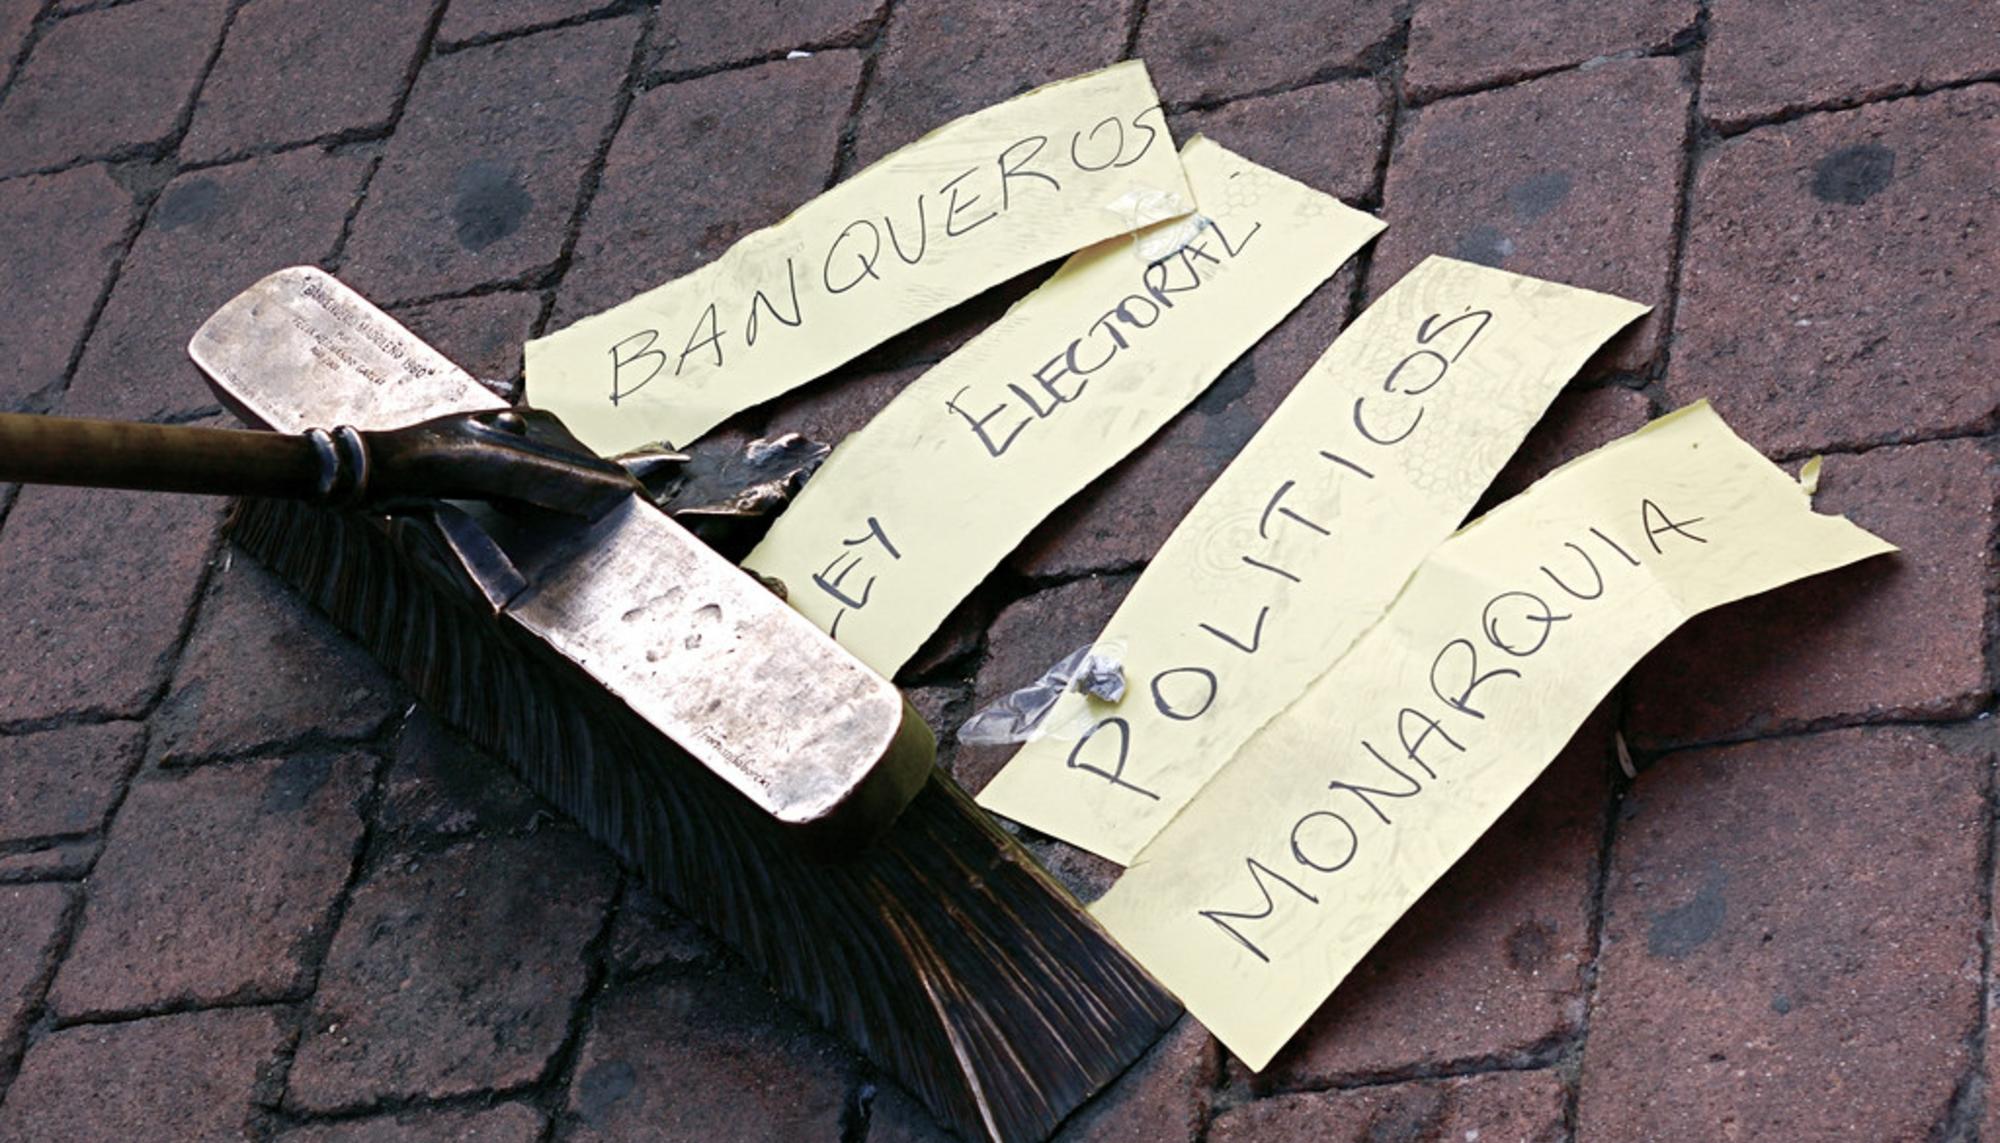 BANQUEROS
LEY ELECTORAL
POLITICOS
MONARQUIA
BARRENDERO MADRILEÑO 1960
POR
FELIX HERNANDO GARCIA